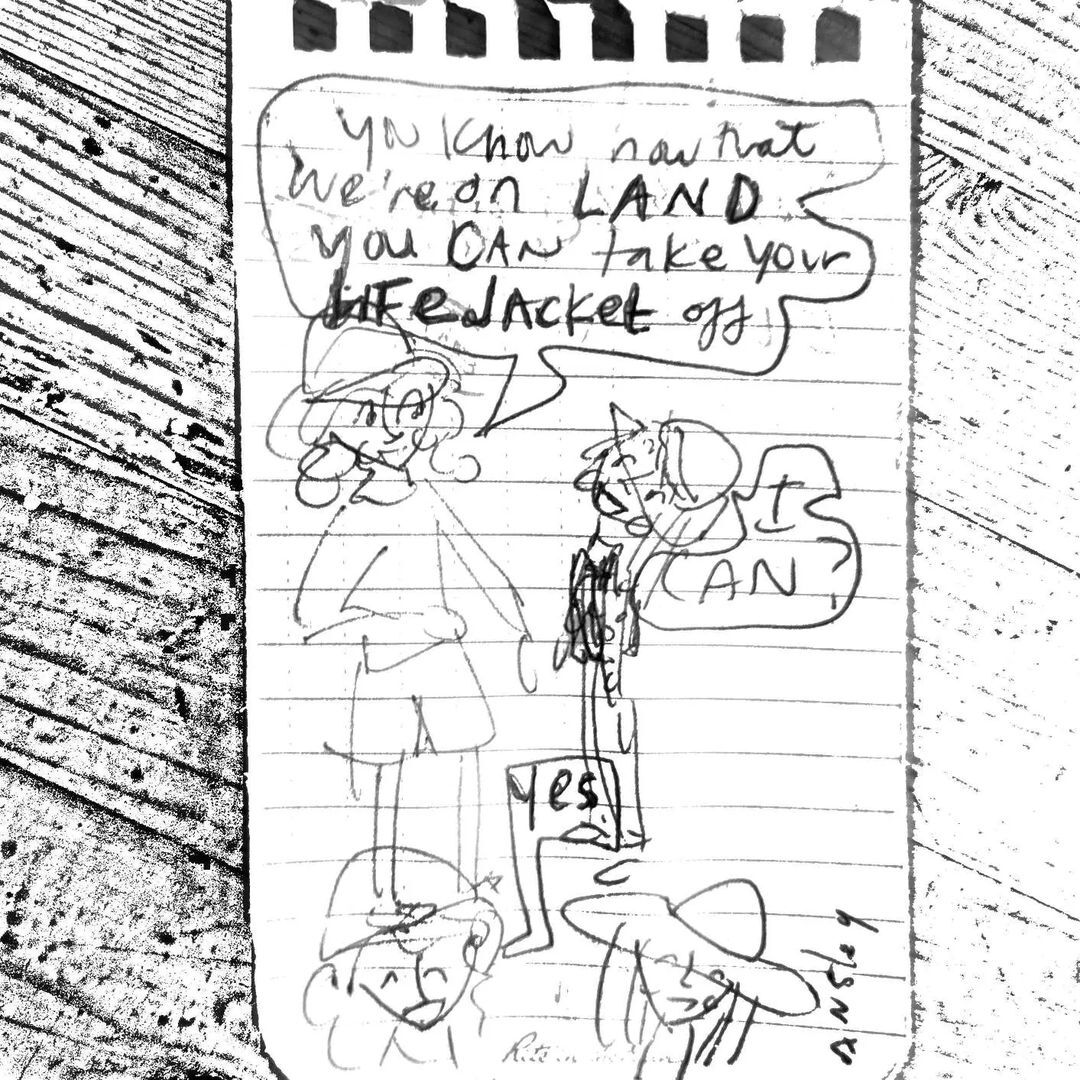 yu Know now that
We're on LAND
you CAN take your
LIFeJAcket off
I
CAN?
yes
ANSley
Rite in the Rain